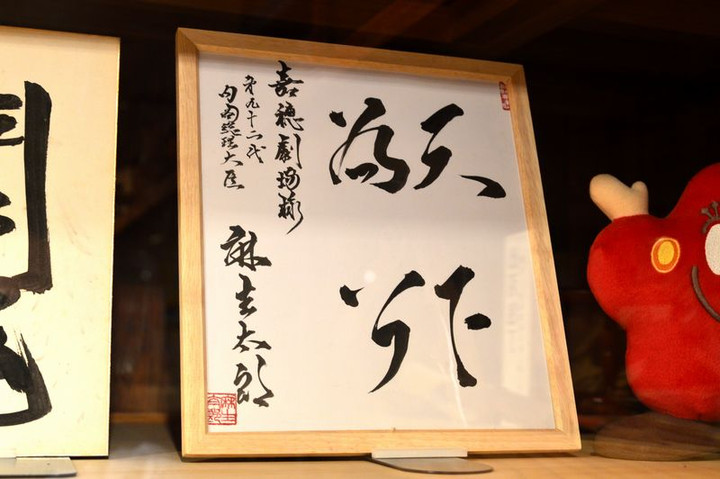 天下
為公
嘉穂劇場様
第九十二代
内閣総理大臣
麻生太郎